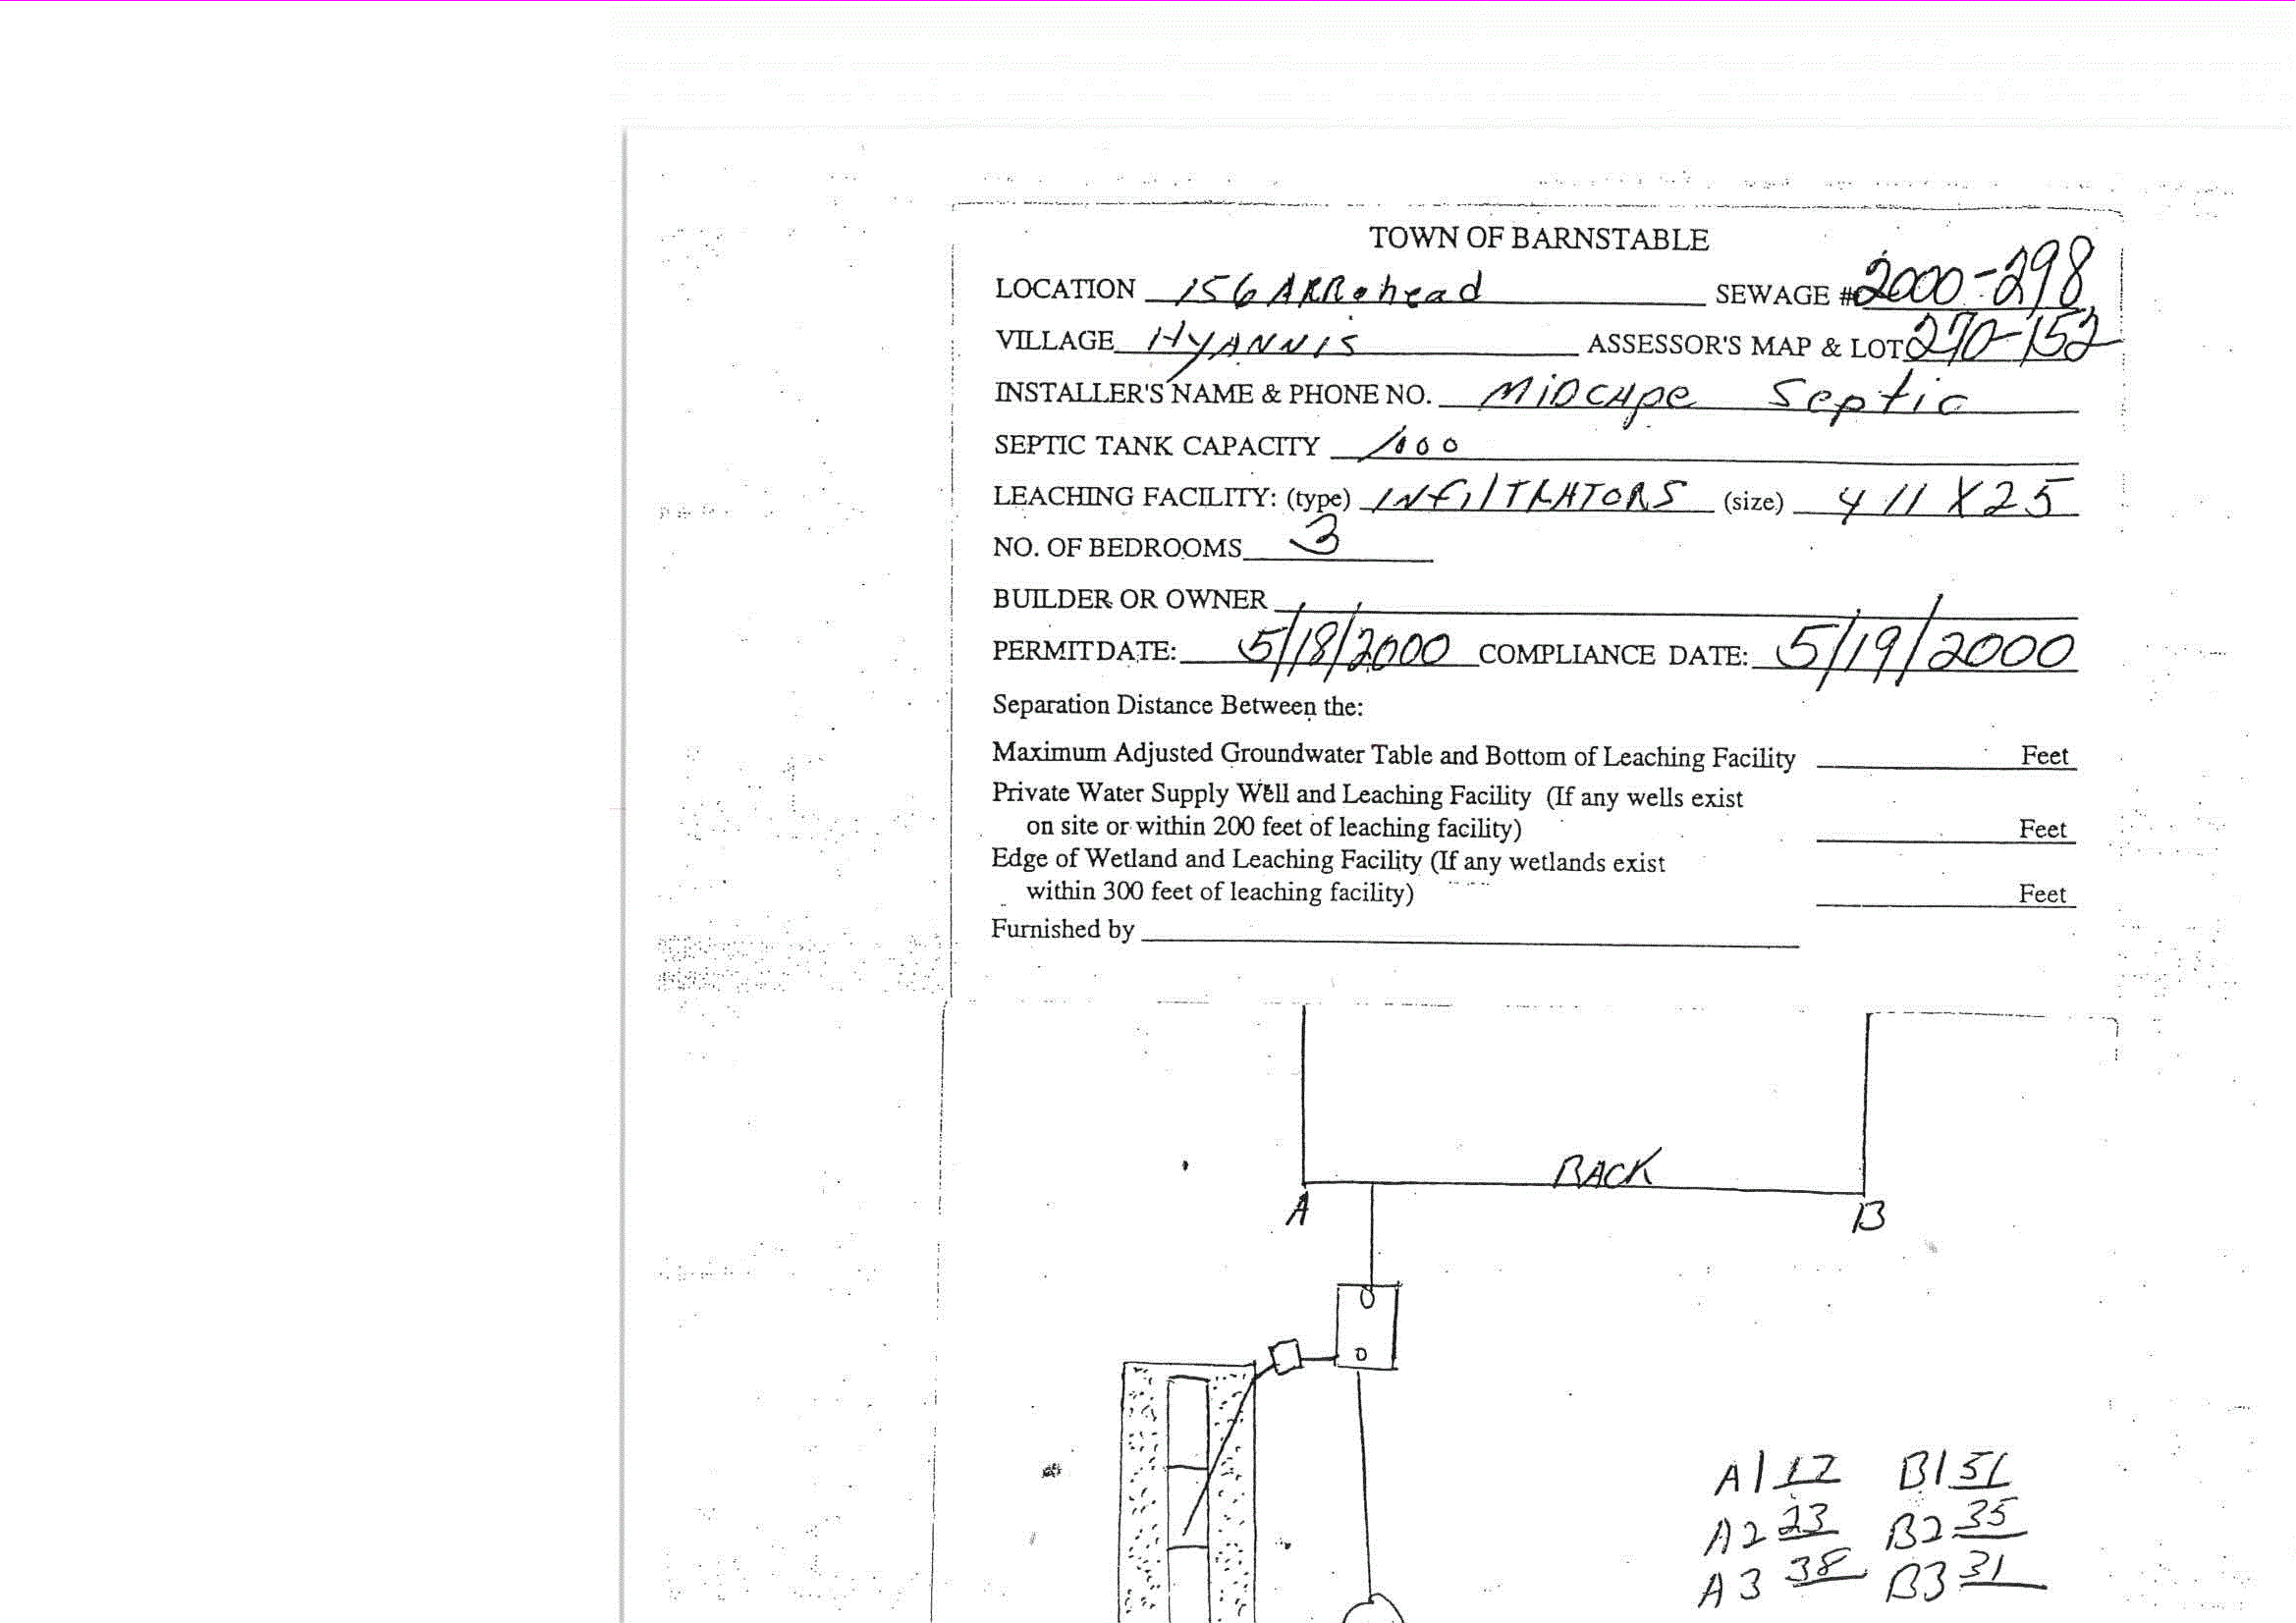 TOWN OF BARNSTABLE
LOCATION 156 ARRohead SEWAGE # 2000-298
VILLAGE HYANNIS ASSESSOR'S MAP & LOT 270-152
INSTALLER'S NAME & PHONE NO. MiDCApe Septic
SEPTIC TANK CAPACITY 1000
LEACHING FACILITY: (type) INfilTRATORS (size) 4 11 X 25
NO. OF BEDROOMS 3
BUILDER OR OWNER
PERMIT DATE: 5/18/2000 COMPLIANCE DATE: 5/19/2000
Separation Distance Between the:
Maximum Adjusted Groundwater Table and Bottom of Leaching Facility Feet
Private Water Supply Well and Leaching Facility (If any wells exist
on site or within 200 feet of leaching facility) Feet
Edge of Wetland and Leaching Facility (If any wetlands exist
within 300 feet of leaching facility) Feet
Furnished by
BACK
A B
A1 17 B1
A2 23 B2 35
A3 38 B3 31